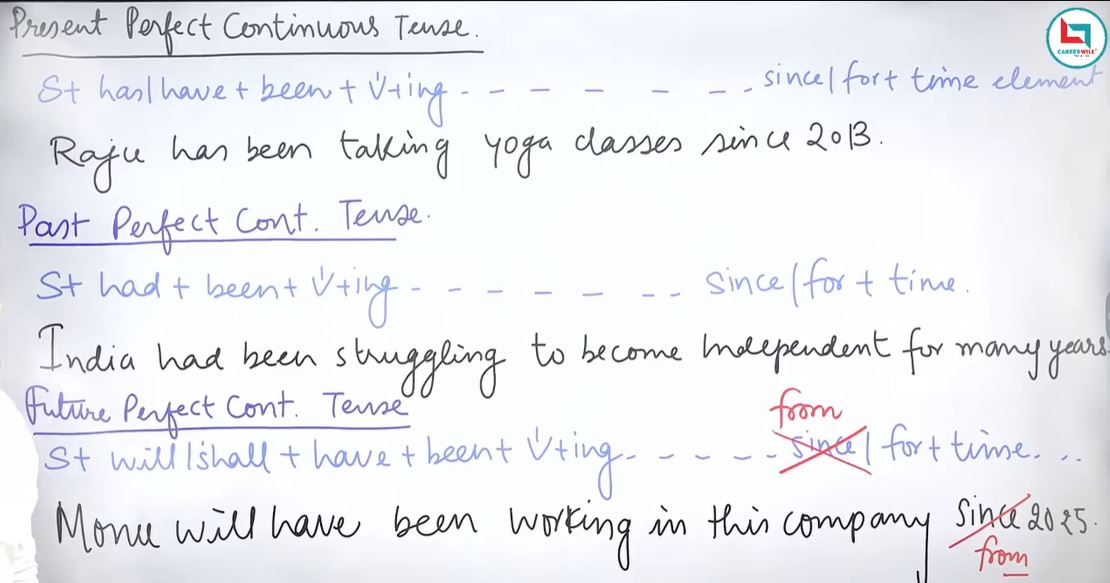 Present Perfect Continuous Tense.
CAREERWILL
S+ has/have + been + V¹+ing - - - - - - - . since/for + time element
Raju has been taking yoga classes since 2013.
Past Perfect Cont. Tense.
S+ had + been + V¹+ing - - - - - - - - since/for + time.
India had been struggling to become Independent for many years.
Future Perfect Cont. Tense
from
S+ will/shall + have + been + V¹+ing - - - - - - since/for + time. . .
Monu will have been working in this company since 2025.
from